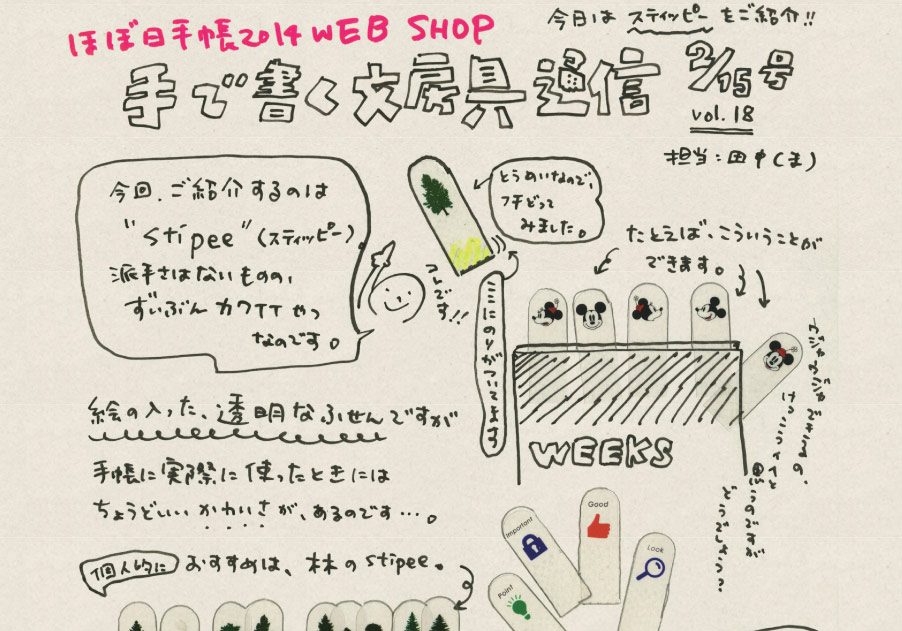 ほぼ日手帳2014 WEB SHOP
今日は スティッピー をご紹介!!
手で書く文房具通信 2/15号
vol. 18
担当:田中(ま)
今回、ご紹介するのは
"stipee"(スティッピー)
派手さはないものの、
ずいぶん カワイイ やつ
なのです。
コレです!!
とうめいなので、
フチどって
みました。
ここにのりがついてます
たとえば、こういうことが
できます。
WEEKS
絵の入った、透明なふせんですが
手帳に実際に使ったときには
ちょうどいい かわいさが、あるのです…。
個人的に
おすすめは、林のstipee。
Important
Good
Look
Point
ウジャウジャ
けっこういいと
思うのですが
どうでしょう?